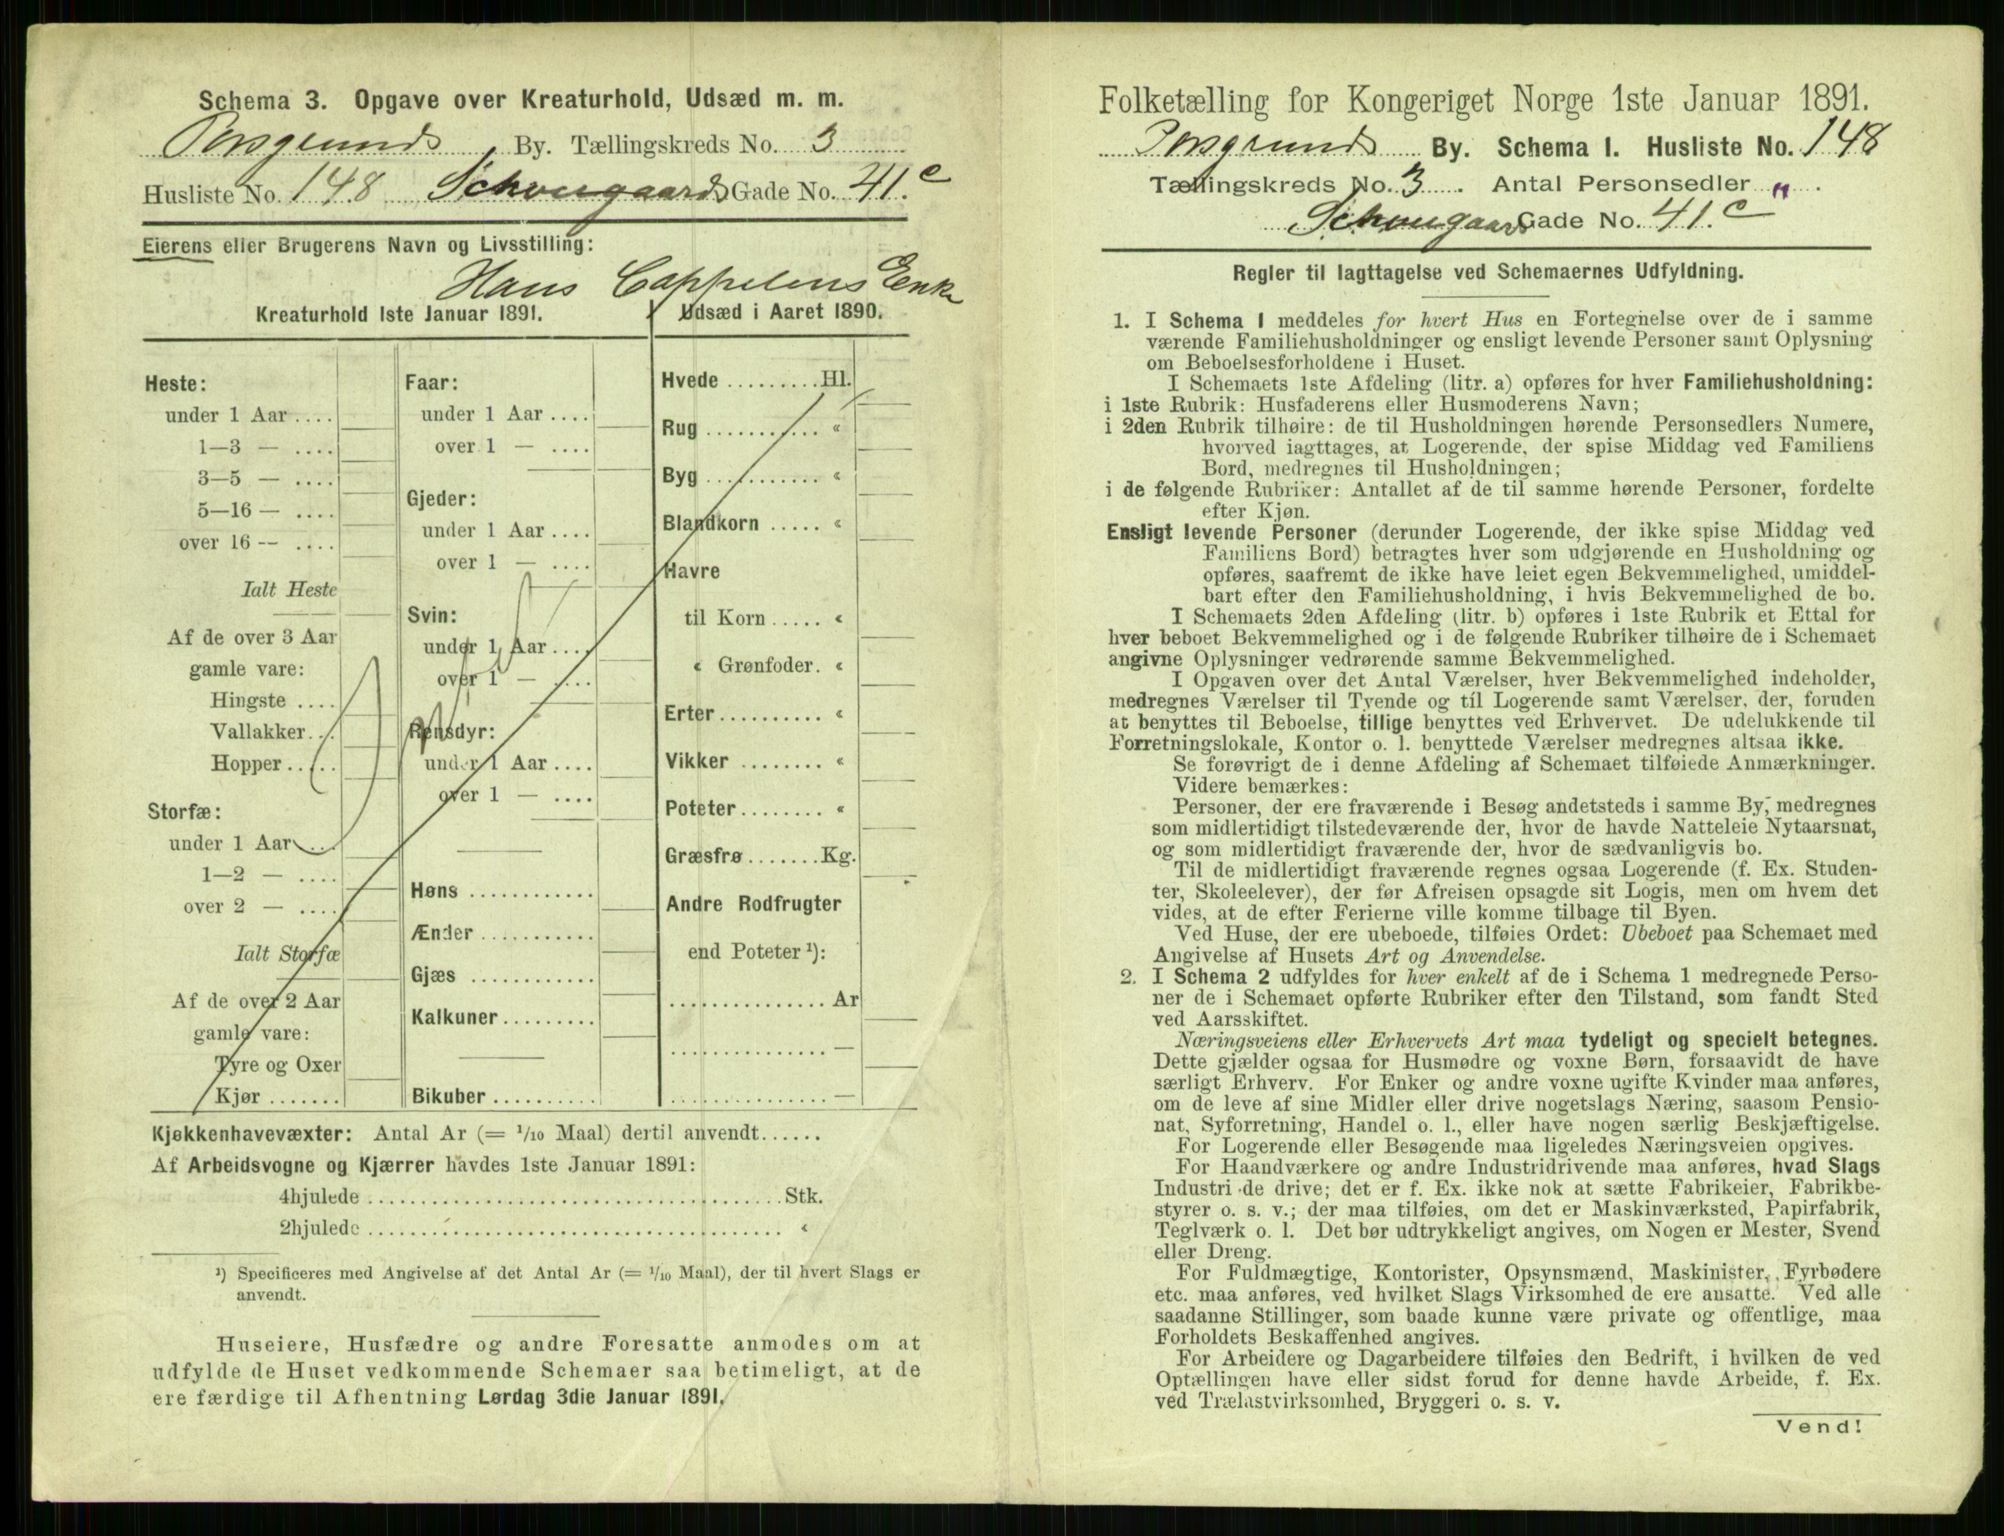 Schema 3. Opgave over Kreaturhold, Udsæd m. m.
Porsgrunds By. Tællingskreds No. 3
Husliste No. 148 Schougaards Gade No. 41c
Eierens eller Brugerens Navn og Livsstilling:
Hans Cappelens Enke
Kreaturhold 1ste Januar 1891.
Heste:
under 1 Aar ....
1—3 — ....
3—5 — ....
5—16 — ....
over 16 — ....
Ialt Heste
Af de over 3 Aar
gamle vare:
Hingste ....
Vallakker....
Hopper .....
Storfæ:
under 1 Aar ....
1—2 — ....
over 2 — ....
Ialt Storfæ
Af de over 2 Aar
gamle vare:
Tyre og Oxer
Kjør .......
Faar:
under 1 Aar ....
over 1 — ....
Gjeder:
under 1 Aar ....
over 1 — ....
Svin:
under 1 Aar ....
over 1 — ....
Rensdyr:
under 1 Aar ....
over 1 — ....
Høns ............
Ænder ...........
Gjæs ............
Kalkuner.........
Bikuber ..........
Udsæd i Aaret 1890.
Hvede .........Hl.
Rug ........... «
Byg ........... «
Blandkorn ..... «
Havre
til Korn ..... «
« Grønfoder. «
Erter.......... «
Vikker ........ «
Poteter ........ «
Græsfrø .......Kg.
Andre Rodfrugter
end Poteter ¹):
............... Ar
............... —
............... —
Kjøkkenhavevæxter: Antal Ar (= 1/10 Maal) dertil anvendt......
Af Arbeidsvogne og Kjærrer havdes 1ste Januar 1891:
4hjulede ........................................ Stk.
2hjulede ........................................ «
¹) Specificeres med Angivelse af det Antal Ar (= 1/10 Maal), der til hvert Slags er
anvendt.
Huseiere, Husfædre og andre Foresatte anmodes om at
udfylde de Huset vedkommende Schemaer saa betimeligt, at de
ere færdige til Afhentning Lørdag 3die Januar 1891.
Folketælling for Kongeriget Norge 1ste Januar 1891.
Porsgrunds By. Schema I. Husliste No. 148
Tællingskreds No. 3. Antal Personsedler „ .
Schougaards Gade No. 41c
Regler til Iagttagelse ved Schemaernes Udfyldning.
1. I Schema I meddeles for hvert Hus en Fortegnelse over de i samme
værende Familiehusholdninger og ensligt levende Personer samt Oplysning
om Beboelsesforholdene i Huset.
I Schemaets 1ste Afdeling (litr. a) opføres for hver Familiehusholdning:
i 1ste Rubrik: Husfaderens eller Husmoderens Navn;
i 2den Rubrik tilhøire: de til Husholdningen hørende Personsedlers Numere,
hvorved iagttages, at Logerende, der spise Middag ved Familiens
Bord, medregnes til Husholdningen;
i de følgende Rubriker: Antallet af de til samme hørende Personer, fordelte
efter Kjøn.
Ensligt levende Personer (derunder Logerende, der ikke spise Middag ved
Familiens Bord) betragtes hver som udgjørende en Husholdning og
opføres, saafremt de ikke have leiet egen Bekvemmelighed, umiddel-
bart efter den Familiehusholdning, i hvis Bekvemmelighed de bo.
I Schemaets 2den Afdeling (litr. b) opføres i 1ste Rubrik et Ettal for
hver beboet Bekvemmelighed og i de følgende Rubriker tilhøire de i Schemaet
angivne Oplysninger vedrørende samme Bekvemmelighed.
I Opgaven over det Antal Værelser, hver Bekvemmelighed indeholder,
medregnes Værelser til Tyende og til Logerende samt Værelser, der, foruden
at benyttes til Beboelse, tillige benyttes ved Erhvervet. De udelukkende til
Forretningslokale, Kontor o. l. benyttede Værelser medregnes altsaa ikke.
Se forøvrigt de i denne Afdeling af Schemaet tilføiede Anmærkninger.
Videre bemærkes:
Personer, der ere fraværende i Besøg andetsteds i samme By, medregnes
som midlertidigt tilstedeværende der, hvor de havde Natteleie Nytaarsnat,
og som midlertidigt fraværende der, hvor de sædvanligvis bo.
Til de midlertidigt fraværende regnes ogsaa Logerende (f. Ex. Studen-
ter, Skoleelever), der før Afreisen opsagde sit Logis, men om hvem det
vides, at de efter Ferierne ville komme tilbage til Byen.
Ved Huse, der ere ubeboede, tilføies Ordet: Ubeboet paa Schemaet med
Angivelse af Husets Art og Anvendelse.
2. I Schema 2 udfyldes for hver enkelt af de i Schema 1 medregnede Perso-
ner de i Schemaet opførte Rubriker efter den Tilstand, som fandt Sted
ved Aarsskiftet.
Næringsveiens eller Erhvervets Art maa tydeligt og specielt betegnes.
Dette gjælder ogsaa for Husmødre og voxne Børn, forsaavidt de have
særligt Erhverv. For Enker og andre voxne ugifte Kvinder maa anføres,
om de leve af sine Midler eller drive nogetslags Næring, saasom Pensio-
nat, Syforretning, Handel o. l., eller have nogen særlig Beskjæftigelse.
For Logerende eller Besøgende maa ligeledes Næringsveien opgives.
For Haandværkere og andre Industridrivende maa anføres, hvad Slags
Industri de drive; det er f. Ex. ikke nok at sætte Fabrikeier, Fabrikbe-
styrer o. s. v.; der maa tilføies, om det er Maskinværksted, Papirfabrik,
Teglværk o. l. Det bør udtrykkeligt angives, om Nogen er Mester, Svend
eller Dreng.
For Fuldmægtige, Kontorister, Opsynsmænd, Maskinister, Fyrbødere
etc. maa anføres, ved hvilket Slags Virksomhed de ere ansatte. Ved alle
saadanne Stillinger, som baade kunne være private og offentlige, maa
Forholdets Beskaffenhed angives.
For Arbeidere og Dagarbeidere tilføies den Bedrift, i hvilken de ved
Optællingen have eller sidst forud for denne havde Arbeide, f. Ex.
ved Trælastvirksomhed, Bryggeri o. s. v.
Vend!